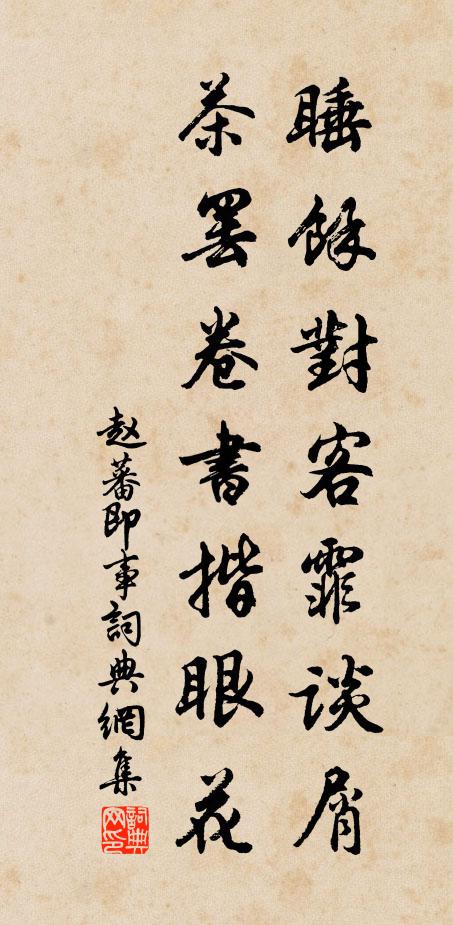 睡餘對客霏談屑
茶罷卷書揩眼花
赵蕃即事詞典網集
詞典网印